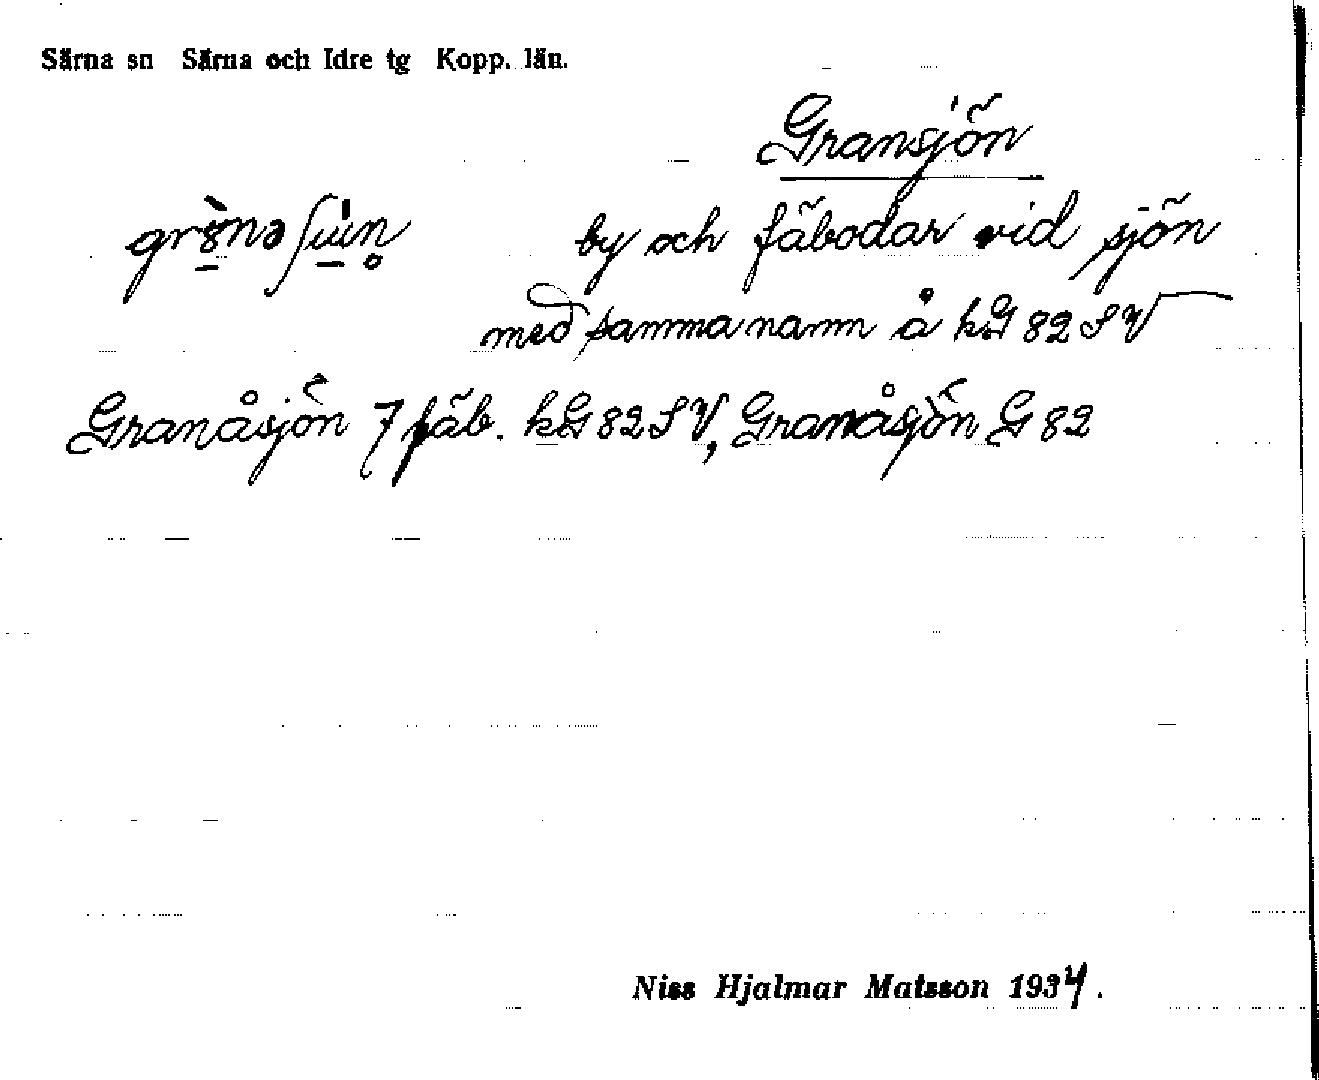 Särna sn Särna och Idre tg Kopp. län.
Gransjön
by och fäbodar vid sjön
med samma namn å kG 82 SV
Granåsjön 7 fäb. kG 82 SV, Granåsjön G 82
Niss Hjalmar Matsson 1934.